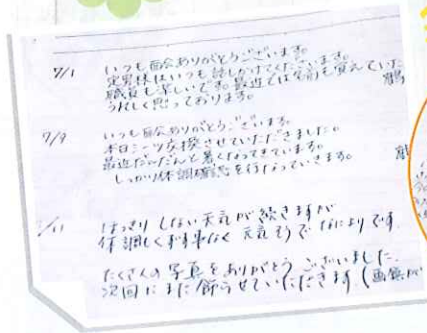 7/1 いつも面会ありがとうございます。
定男様はいつも話しかけてくださいます。
職員も楽しいです。最近では名前も覚えていた
うれしく思っております。
7/9 いつも面会ありがとうございます。
本日シーツ交換させていただきました。
最近だんだんと暑くなってきています。
しっかり体調確認を行なっていきます。
/11 はっきりしない天気が続きますが
体調しく事なく元気そうでなによりです。
たくさんの写真をありがとうございました。
次回にまた飾らせていただきます(面会